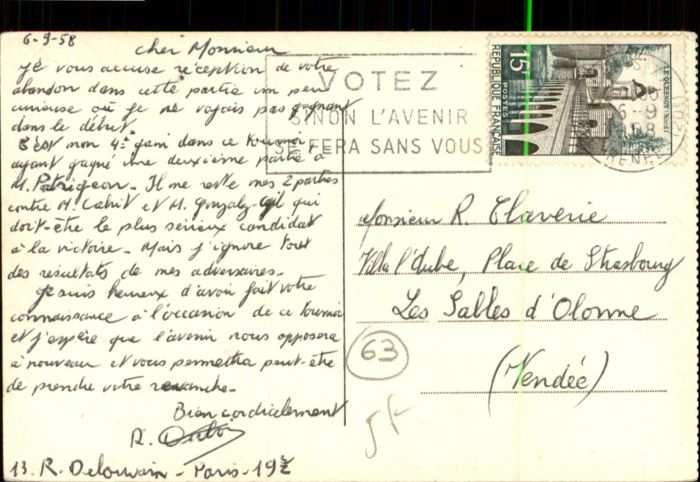 6-9-58
Cher Monsieur
Je vous accuse réception de votre
abandon dans cette partie un peu
curieuse où je ne voyais pas gagnant
dans le début.
C'est mon 4e gain dans ce tournoi
ayant gagné une deuxième partie à
M. Patrigeon. Il me reste mes 2 parties
contre M. et M. qui
doit-être le plus sérieux candidat
à la victoire. Mais j'ignore tout
des resultats de mes adversaires.
Je suis heureux d'avoir fait votre
connaissance à l'occasion de ce tournoi
et j'espère que l'avenir nous opposera
à nouveau et vous permettra peut-être
de prendre votre revanche.
Bien cordialement
R.
13. R. Delouvain - Paris - 19e
VOTEZ
SINON L'AVENIR
SE FERA SANS VOUS
15F
POSTES
REPUBLIQUE FRANÇAISE
LE QUESNOY (Nord)
6-9
Monsieur R. Claverie
Villa l'Aube, Place de Strasbourg
Les Salles d'Olonne
(Vendée)
63